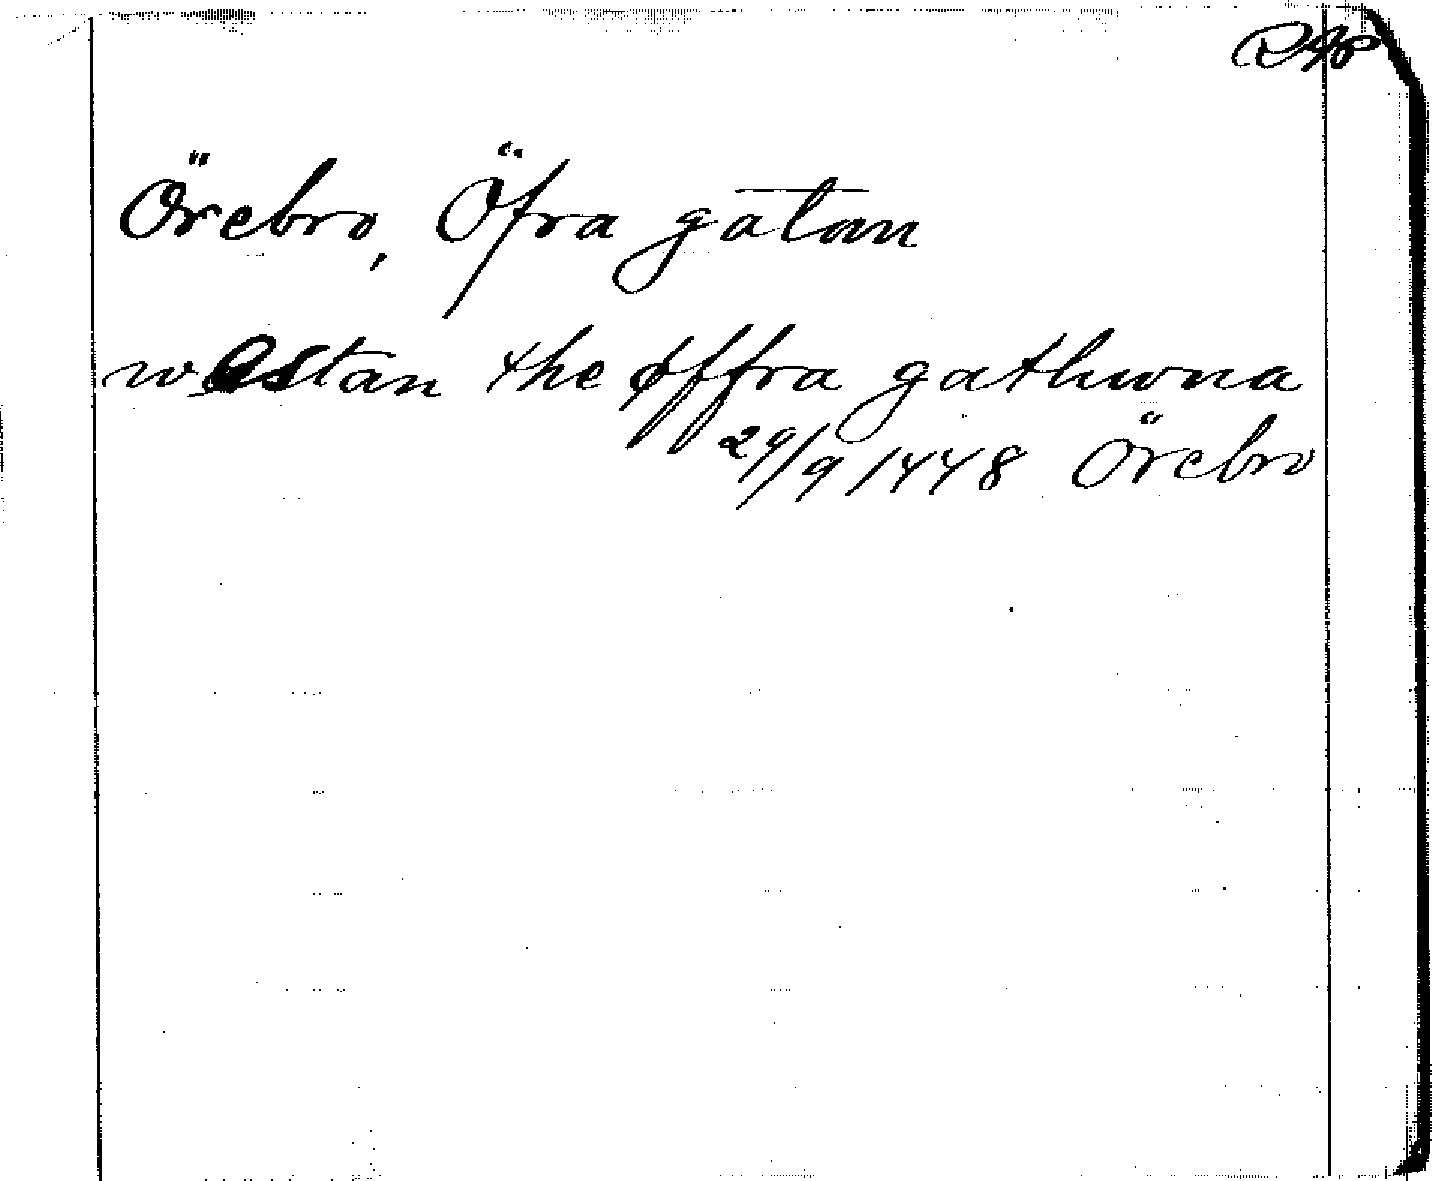 Örebro, Öfra gatan
westan the øffra gathwna
29/9 1448 Örebro